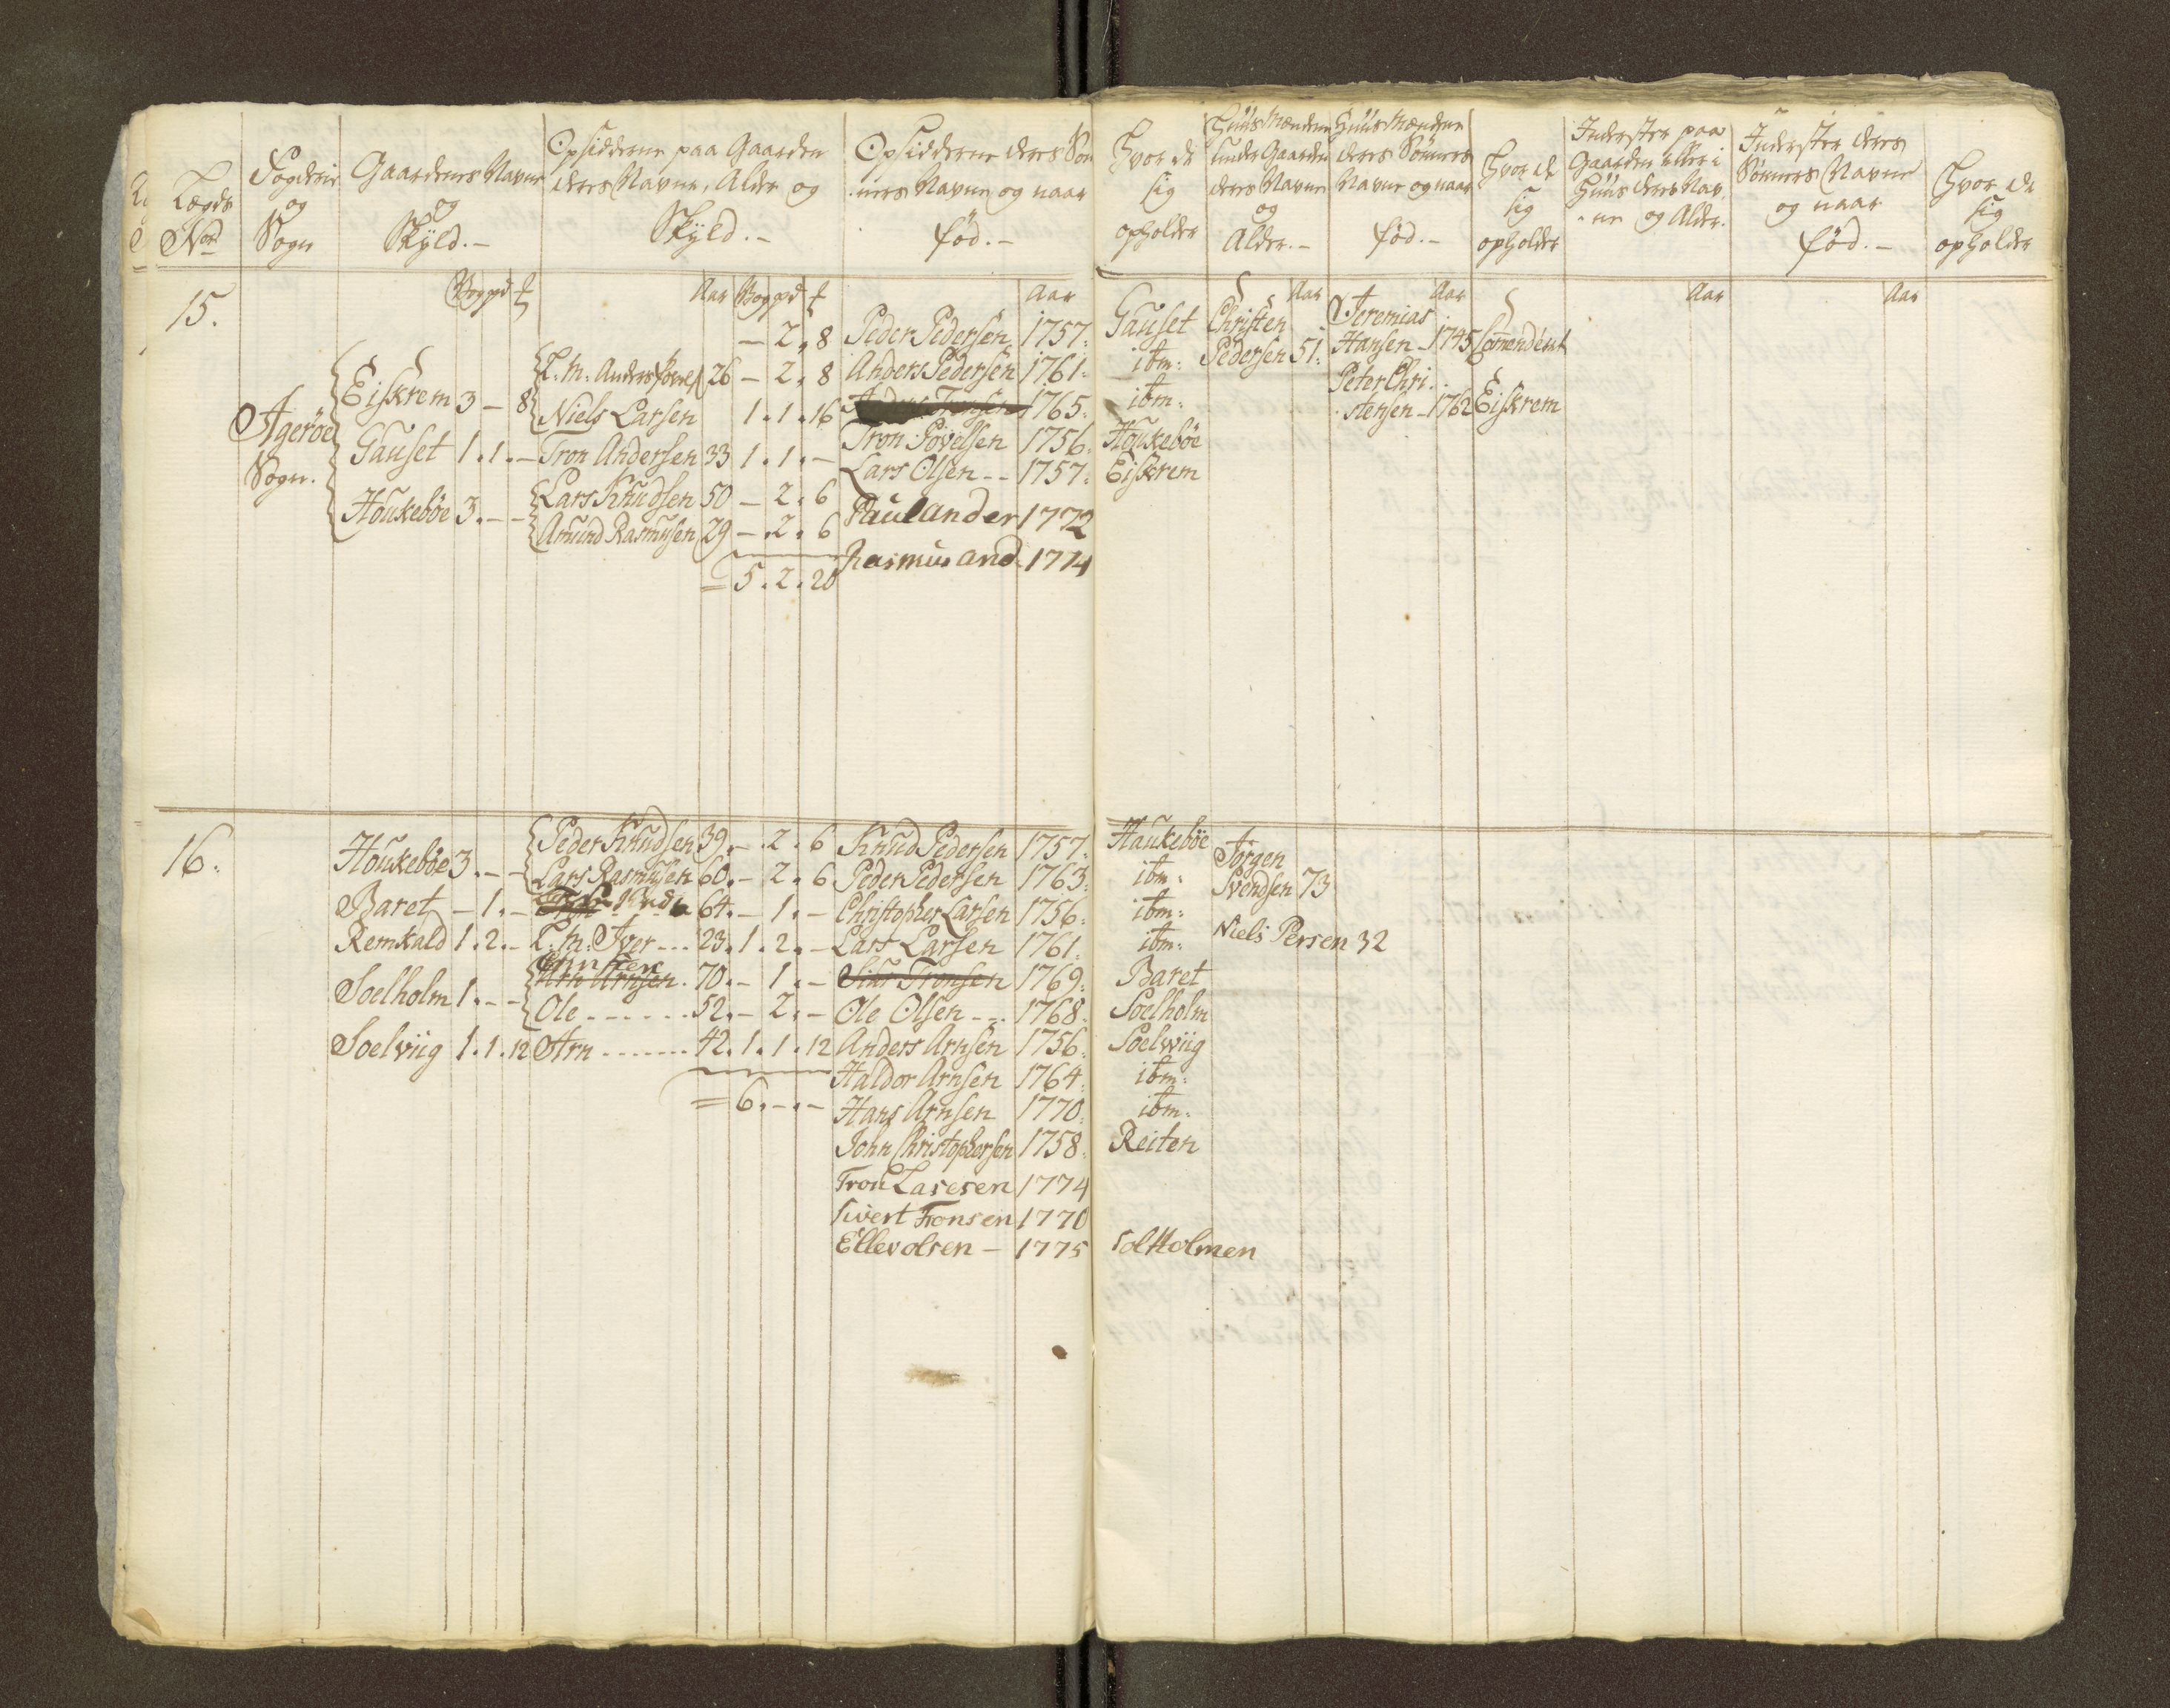 Lægds No
Fogderie og Sogn
Gaardenes Navne og Skÿld.-
Opsidderne paa Gaarden deres Navne, Alder og Skÿld.-
Opsidderne deres Sön-
ners Navne og naar fød.-
Hvor de sig opholder
Huusmændene under Gaarden deres Navne og Alder.-
Huusmændene deres Sønners Navne og naar fød.-
Hvor de sig opholder
Inderster paa Gaarden eller i Huus deres Nav-
ne og Alder.
Inderster deres Sønners Navne og naar fød.-
Hvor de sig opholder
15.
Aar
Aar
Aar
Aar
Aar
Aar
- 2. 8 Peder Pedersen 1757. Gauset Christen Jeremias
Agerøe Sogn.
Eiskrem 3 - 8 26 - 2. 8 Anders Pedersen 1761. ibm: Pedersen 51. Hansen - 1745
Niels Larsen 1. 1. 16 1765. ibm: Peter Chri-
stensen - 1762 Eiskrem
Gauset 1. 1. - Tron Andersen 33 1. 1. - Tron Povelsen 1756. Houkebøe
Lars Olsen -- 1757. Eiskrem
Houkebøe 3. - - Lars Knudsen 50 - 2. 6 Paul ander 1772
Amund Rasmusen 29 - 2. 6 Rasmus and 1774
= 5. 2. 20
16.
Houkebøe 3. - - Peder Knudsen 39. - 2. 6 Knud Pedersen 1757. Haukebøe Jørgen
Lars Rasmusen 60. - 2. 6 Peder Pedersen 1763. ibm: Svendsen 73
Baret - 1. - 64. - 1. - Christopher Larsen 1756. ibm:
Remkald 1. 2. - L: M: Iver --- 23. 1. 2. - Lars Larsen 1761. ibm: Niels Persen 32
Soelholm 1. - - Arn Arnsen. 70. - 1. - Tronsen 1769. Baret
Ole ------ 52. - 2. - Ole Olsen --- 1768. Soelholm
Soelviig 1. 1. 12 Arn ------- 42. 1. 1. 12 Anders Arnsen 1756. Soelwiig
Haldor Arnsen 1764. ibm:
= 6. -. - Hans Arnsen 1770. ibm:
John Christophersen 1758. Reiten
Tron Lasesen 1774
Sivert Tronsen 1770
Ellev olsen - 1775 Solholmen